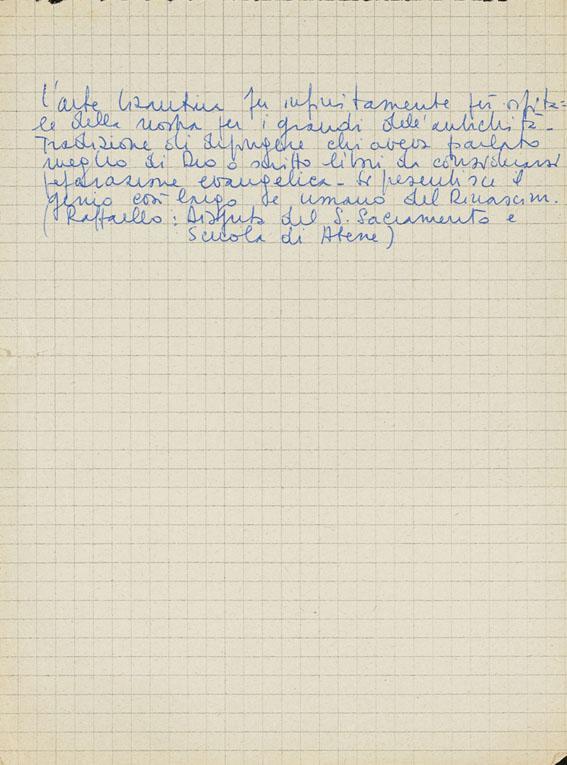 L'arte bizantina fu infinitamente più ospita=
le della nostra per i grandi dell'antichità -
Tradizione di dipingere chi aveva parlato
meglio di Dio o scritto libri da considerarsi
preparazione evangelica - Si presentisce il
genio così largo e umano del Rinascim.
(Raffaello: Disputa del S. Sacramento e
Scuola di Atene)